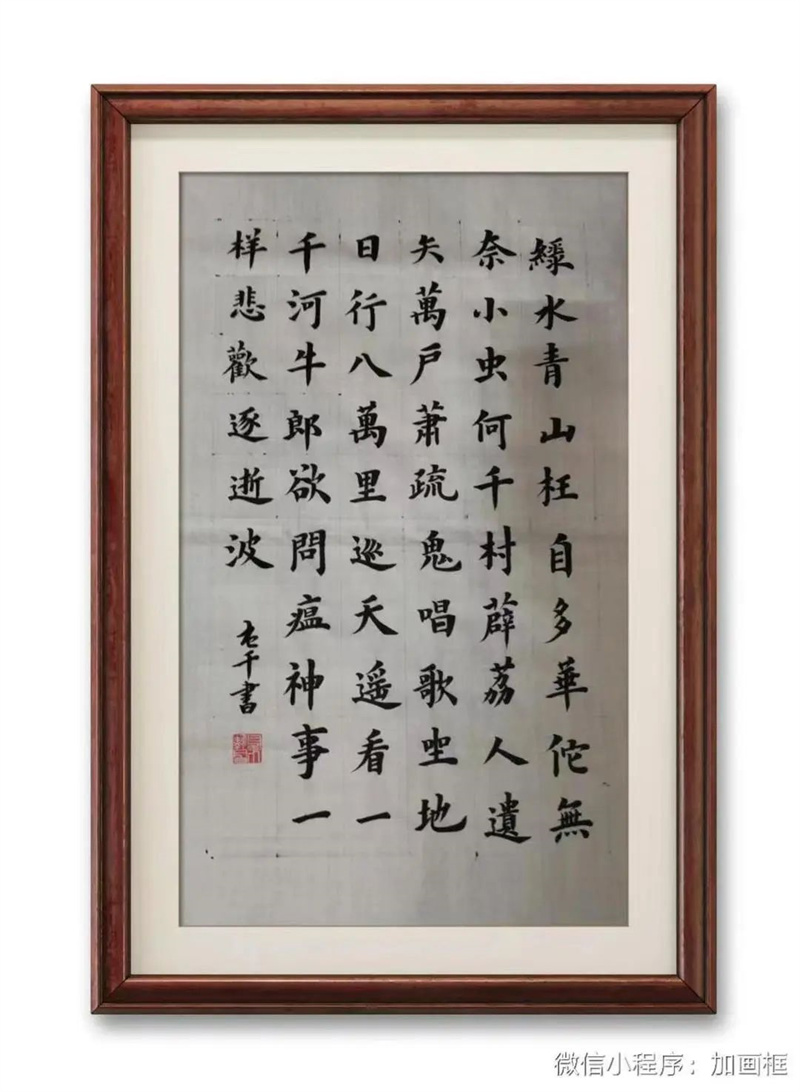 綠水青山枉自多華佗無
奈小虫何千村薜荔人遺
矢萬戶蕭疏鬼唱歌坐地
日行八萬里巡天遥看一
千河牛郎欲問瘟神事一
样悲歡逐逝波
千書
微信小程序：加画框